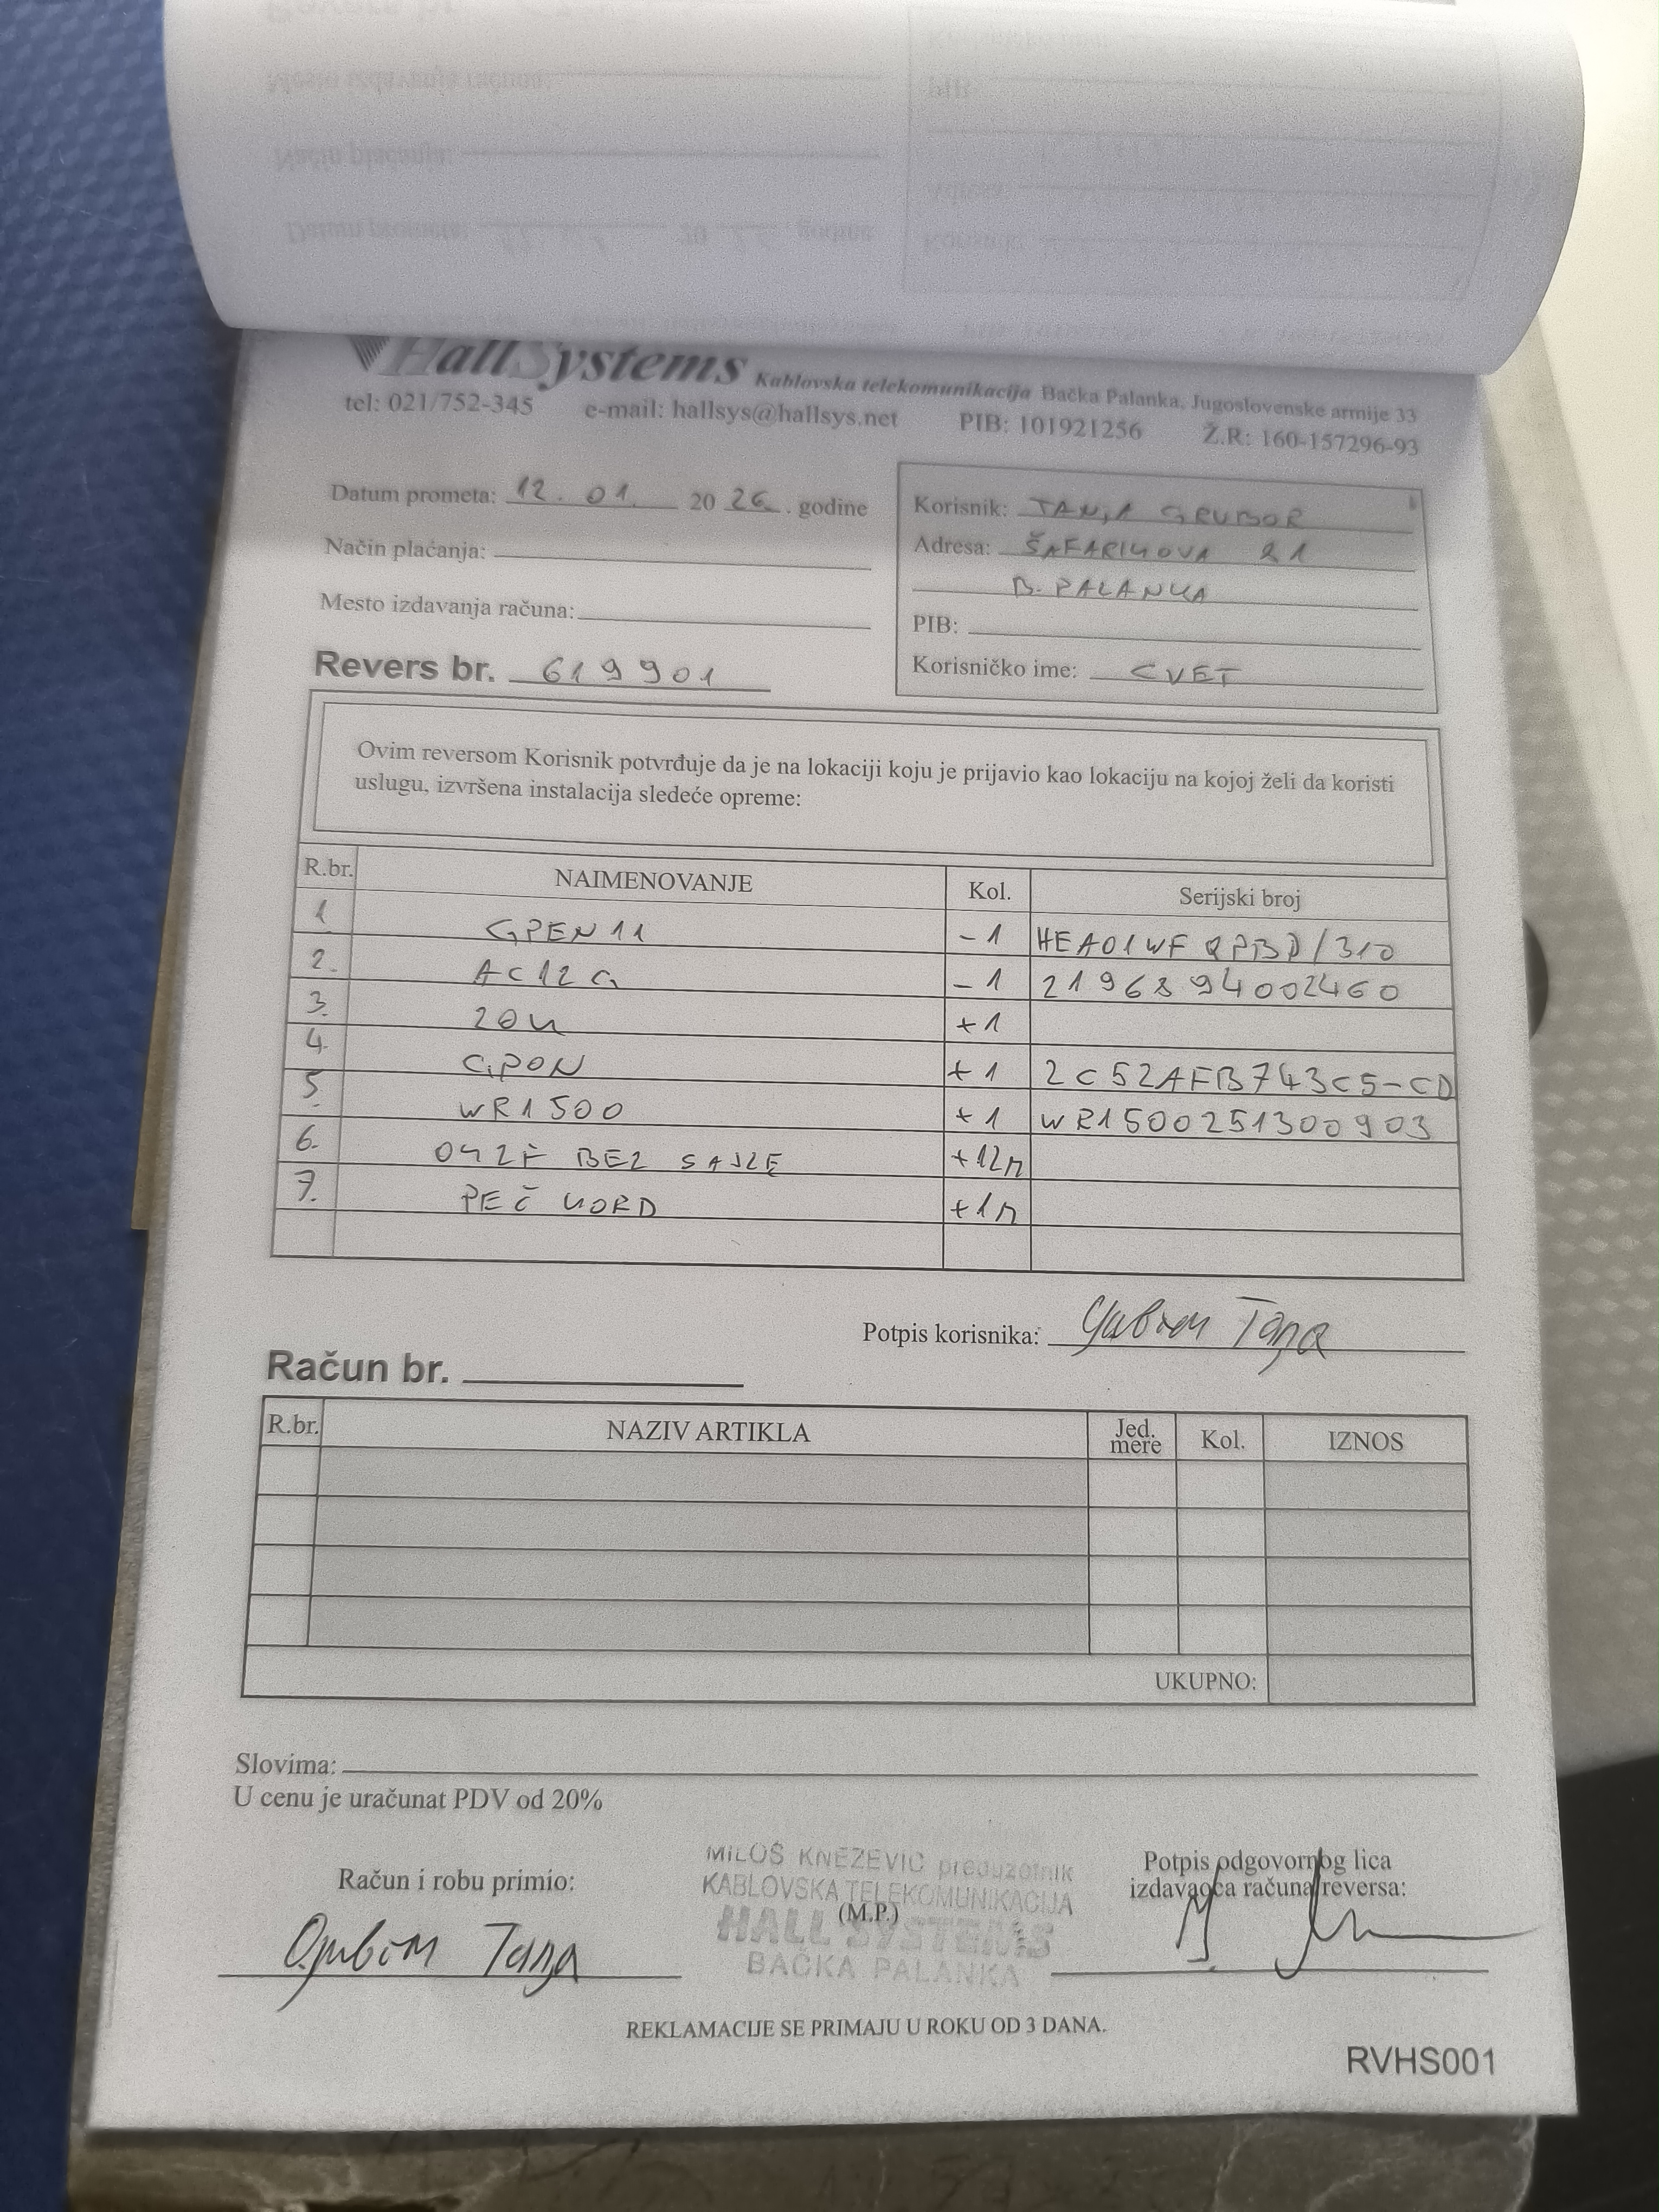 HallSystems Kablovska telekomunikacija Bačka Palanka, Jugoslovenske armije 33
tel: 021/752-345 e-mail: hallsys@hallsys.net PIB: 101921256 Ž.R: 160-157296-93
Datum prometa: 12. 01. 20 26. godine
Način plaćanja:
Mesto izdavanja računa:
Revers br. 619901
Korisnik: TANJA GRUBOR
Adresa: ŠAFARIKOVA 21
B. PALANKA
PIB:
Korisničko ime: CVET
Ovim reversom Korisnik potvrđuje da je na lokaciji koju je prijavio kao lokaciju na kojoj želi da koristi
uslugu, izvršena instalacija sledeće opreme:
R.br. NAIMENOVANJE Kol. Serijski broj
1 GPEN11 -1 HEA01WF QPBD/310
2. AC12G -1 2196894002460
3. +1
4. GPON +1 2C52AFB743C5-CD
5. WR1500 +1 WR1500251300903
6. BEZ SAJLE +12m
7. PEČ KORD +1m
Potpis korisnika: Tanja
Račun br.
R.br. NAZIV ARTIKLA Jed. mere Kol. IZNOS
UKUPNO:
Slovima:
U cenu je uračunat PDV od 20%
Račun i robu primio:
Tanja
MILOŠ KNEŽEVIĆ preduzetnik
KABLOVSKA TELEKOMUNIKACIJA
(M.P.)
HALL SYSTEMS
BAČKA PALANKA
Potpis odgovornog lica
izdavaoca računa/reversa:
REKLAMACIJE SE PRIMAJU U ROKU OD 3 DANA.
RVHS001